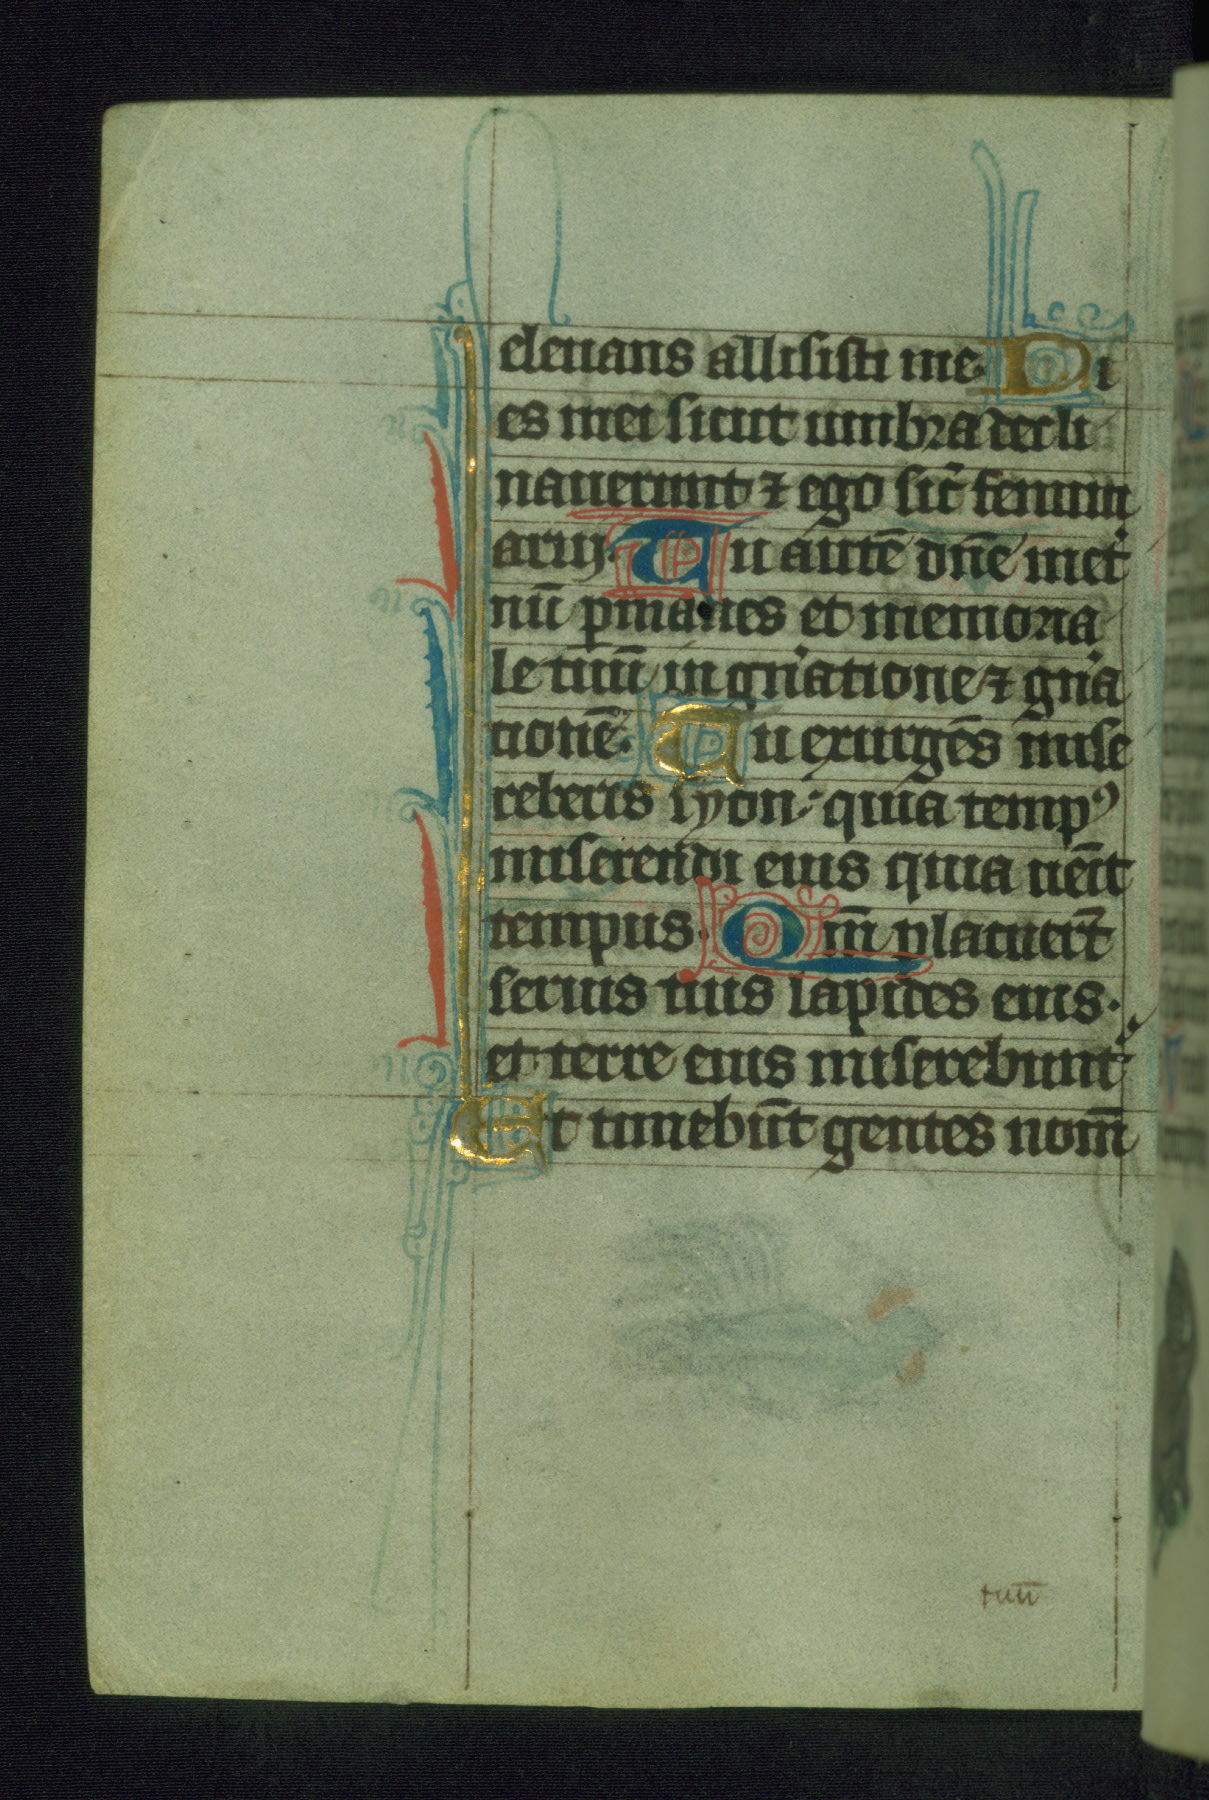 eleuans allisisti me. Di
es mei sicut umbra decli
nauerunt ⁊ ego sic̄ fenum
arui. Tu autē dn̄e inet̾
nū ꝑmanes et memoria
le tuū in gn̾atione ⁊ gn̾a
tionē. Tu exurgēs mise
reberis syon: quia tempꝰ
miserendi eius quia uēit
tempus. Qm̄ placuer̄t
seruis tuis lapides eius.
et terre eius miserebunt̾
Et timebūt gentes nom̄
tuū